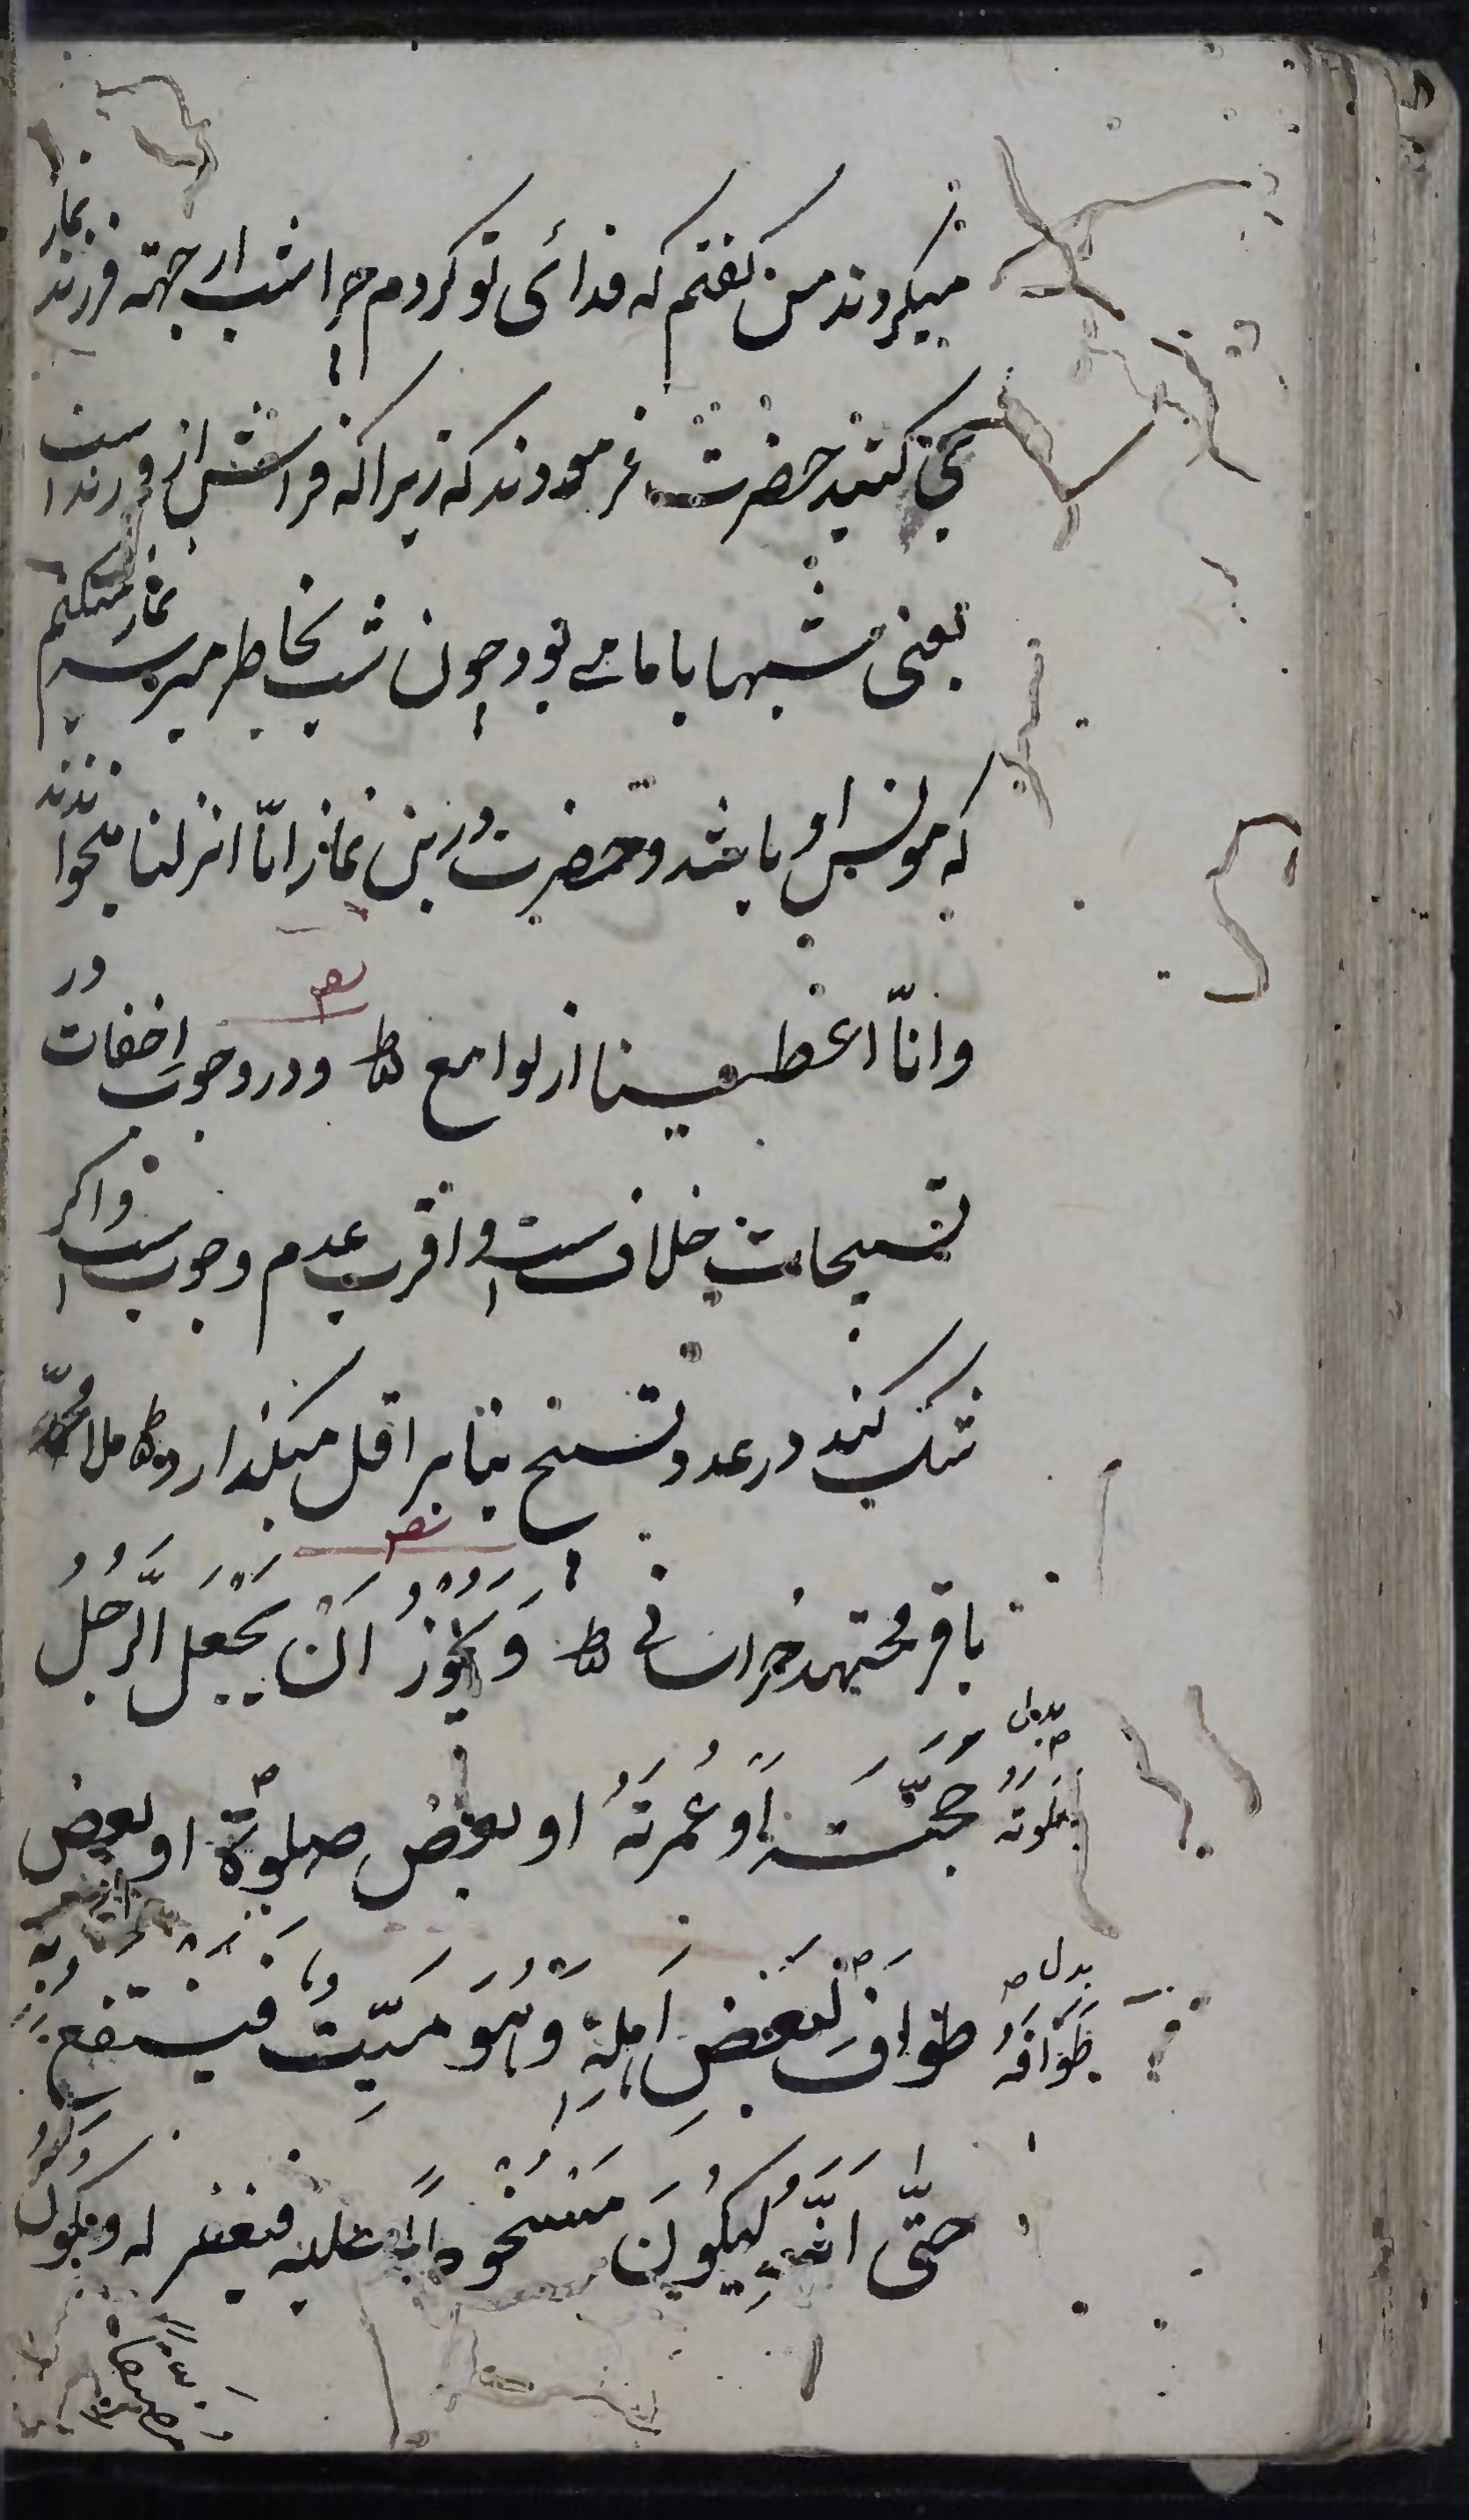 میکردند من کفتم که فدائی تو کردم چرا شب از جهته فرزند نماز
می کنید حضرت فرمودند که زیرا که فراشش از فرزند است
یعنی شبها با ما می بود چون شب بخاطر میرسد نماز میکنم
که مونس او باشد و حضرت درین نماز انّا انزلنا میخواندند
وانّا اعطینا از لوامع ط ودر وجوب اخفات در
تسبیحات خلاف است واقرب عدم وجوب است واکر
شک کند در عدد تسبیح بنا بر اقل میکذارد ط ملا محمّد
باقر مجتهد خراسانی ط وَ یَجُوزُ اَنْ یَجْعَلَ الرَّجُلُ
حَجَّتَهُ اَوْ عُمْرَتَهُ او بعض صلوة او بعض
صلوتَهُ بدل
طواف لِبَعْضِ اَهْلِهِ وَهُوَ مَیِّتٌ فینتفع به
طَوَافَهُ بدل
حتّی انّه لیکُونَ مَسْخُوطاً علیه فیغفر له ویکون